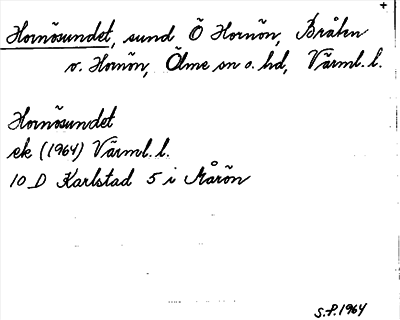 +
Hornösundet, sund Ö Hornön, Bråhn
v. Hornön, Ölme sn o. hd, Värml. l.
Hornösundet
ek (1964) Värml. l.
10 D Karlstad 5 i Mårön
S.P. 1964